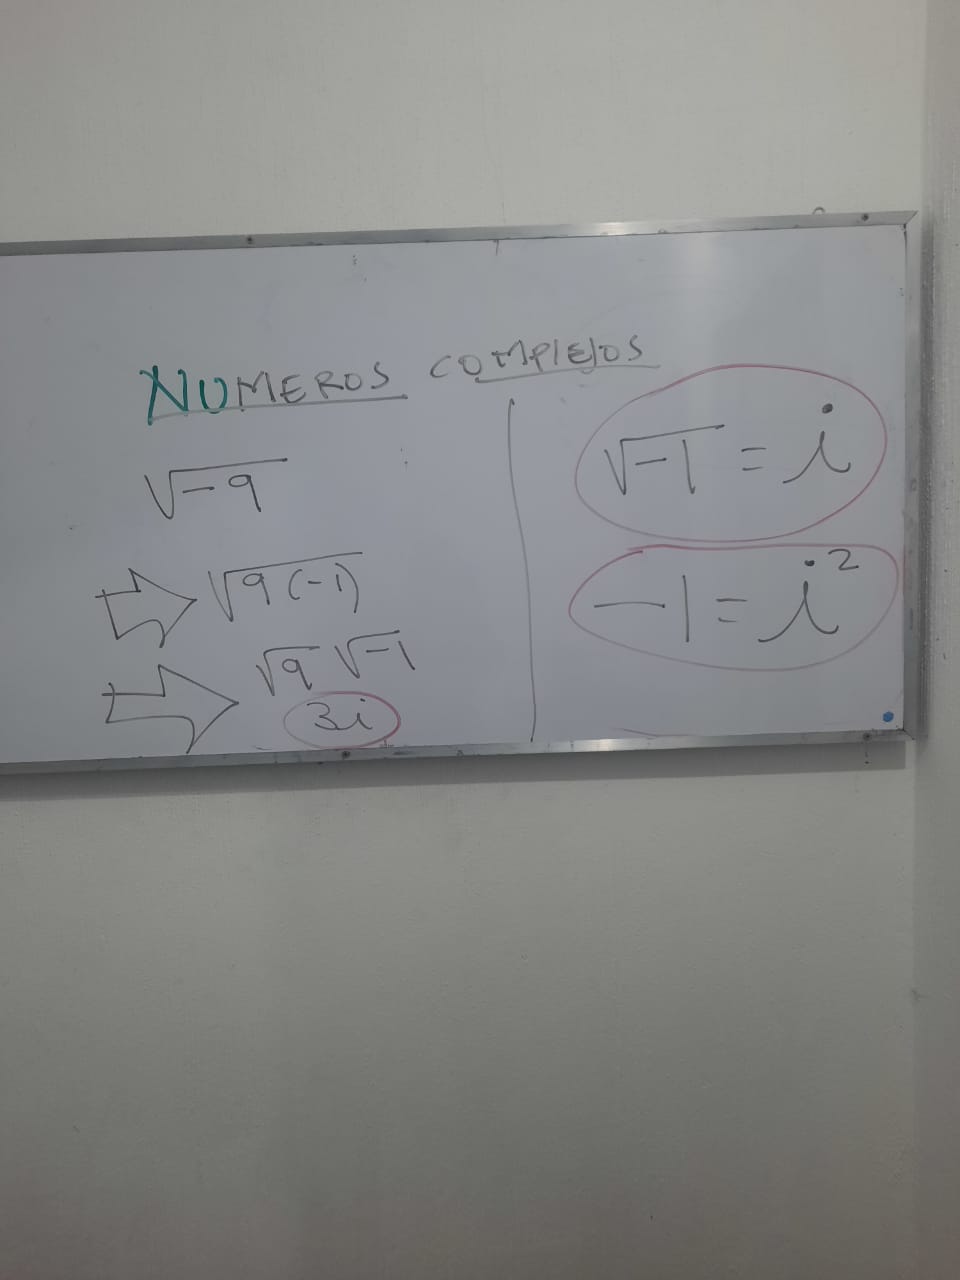 NUMEROS COMPLEJOS
√-9
√9(-1)
√9 √-1
3i
√-1 = i
-1 = i²